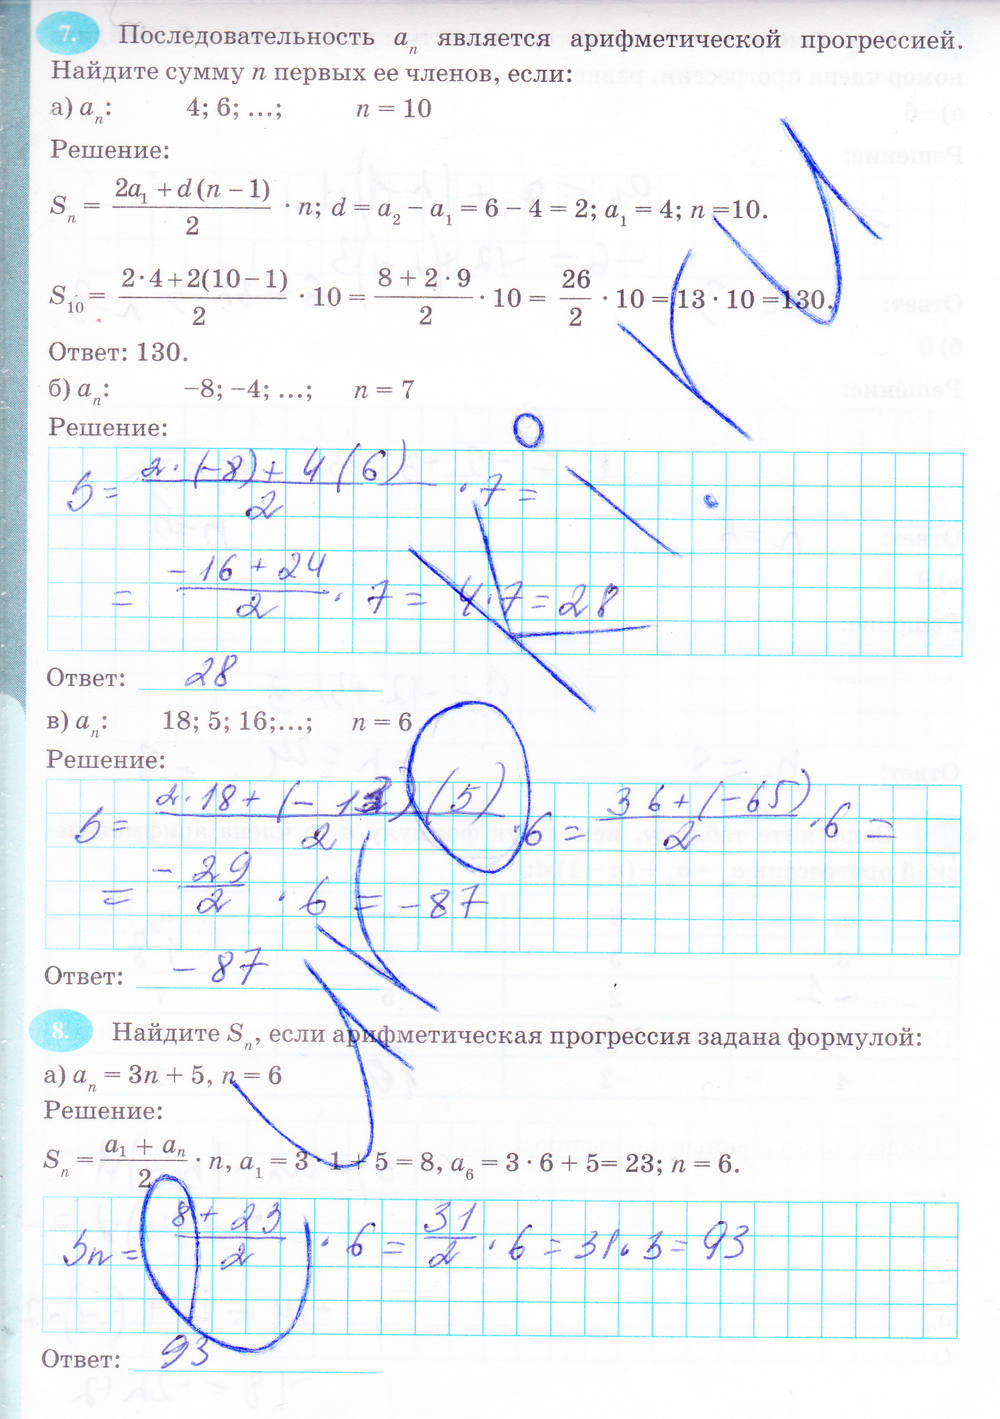 7. Последовательность aₙ является арифметической прогрессией.
Найдите сумму n первых ее членов, если:
а) aₙ: 4; 6; ...; n = 10
Решение:
Sₙ = (2a₁ + d(n − 1))/2 · n; d = a₂ − a₁ = 6 − 4 = 2; a₁ = 4; n =10.
S₁₀ = (2·4+2(10−1))/2 · 10 = (8 + 2·9)/2 · 10 = 26/2 · 10 = 13 · 10 =130.
Ответ: 130.
б) aₙ: −8; −4; ...; n = 7
Решение:
S = (2·(−8)+ 4(6))/2 · 7 =
= (−16 + 24)/2 · 7 = 4·7 = 28
Ответ: 28
в) aₙ: 18; 5; 16;...; n = 6
Решение:
S = (2·18+(−13)(5))/2 ·6 = (36+(−65))/2 ·6 =
= −29/2 · 6 = −87
Ответ: −87
8. Найдите Sₙ, если арифметическая прогрессия задана формулой:
а) aₙ = 3n + 5, n = 6
Решение:
Sₙ = (a₁ + aₙ)/2 · n, a₁ = 3 · 1 + 5 = 8, a₆ = 3 · 6 + 5= 23; n = 6.
Sn = (8 + 23)/2 · 6 = 31/2 · 6 = 31·3 = 93
Ответ: 93